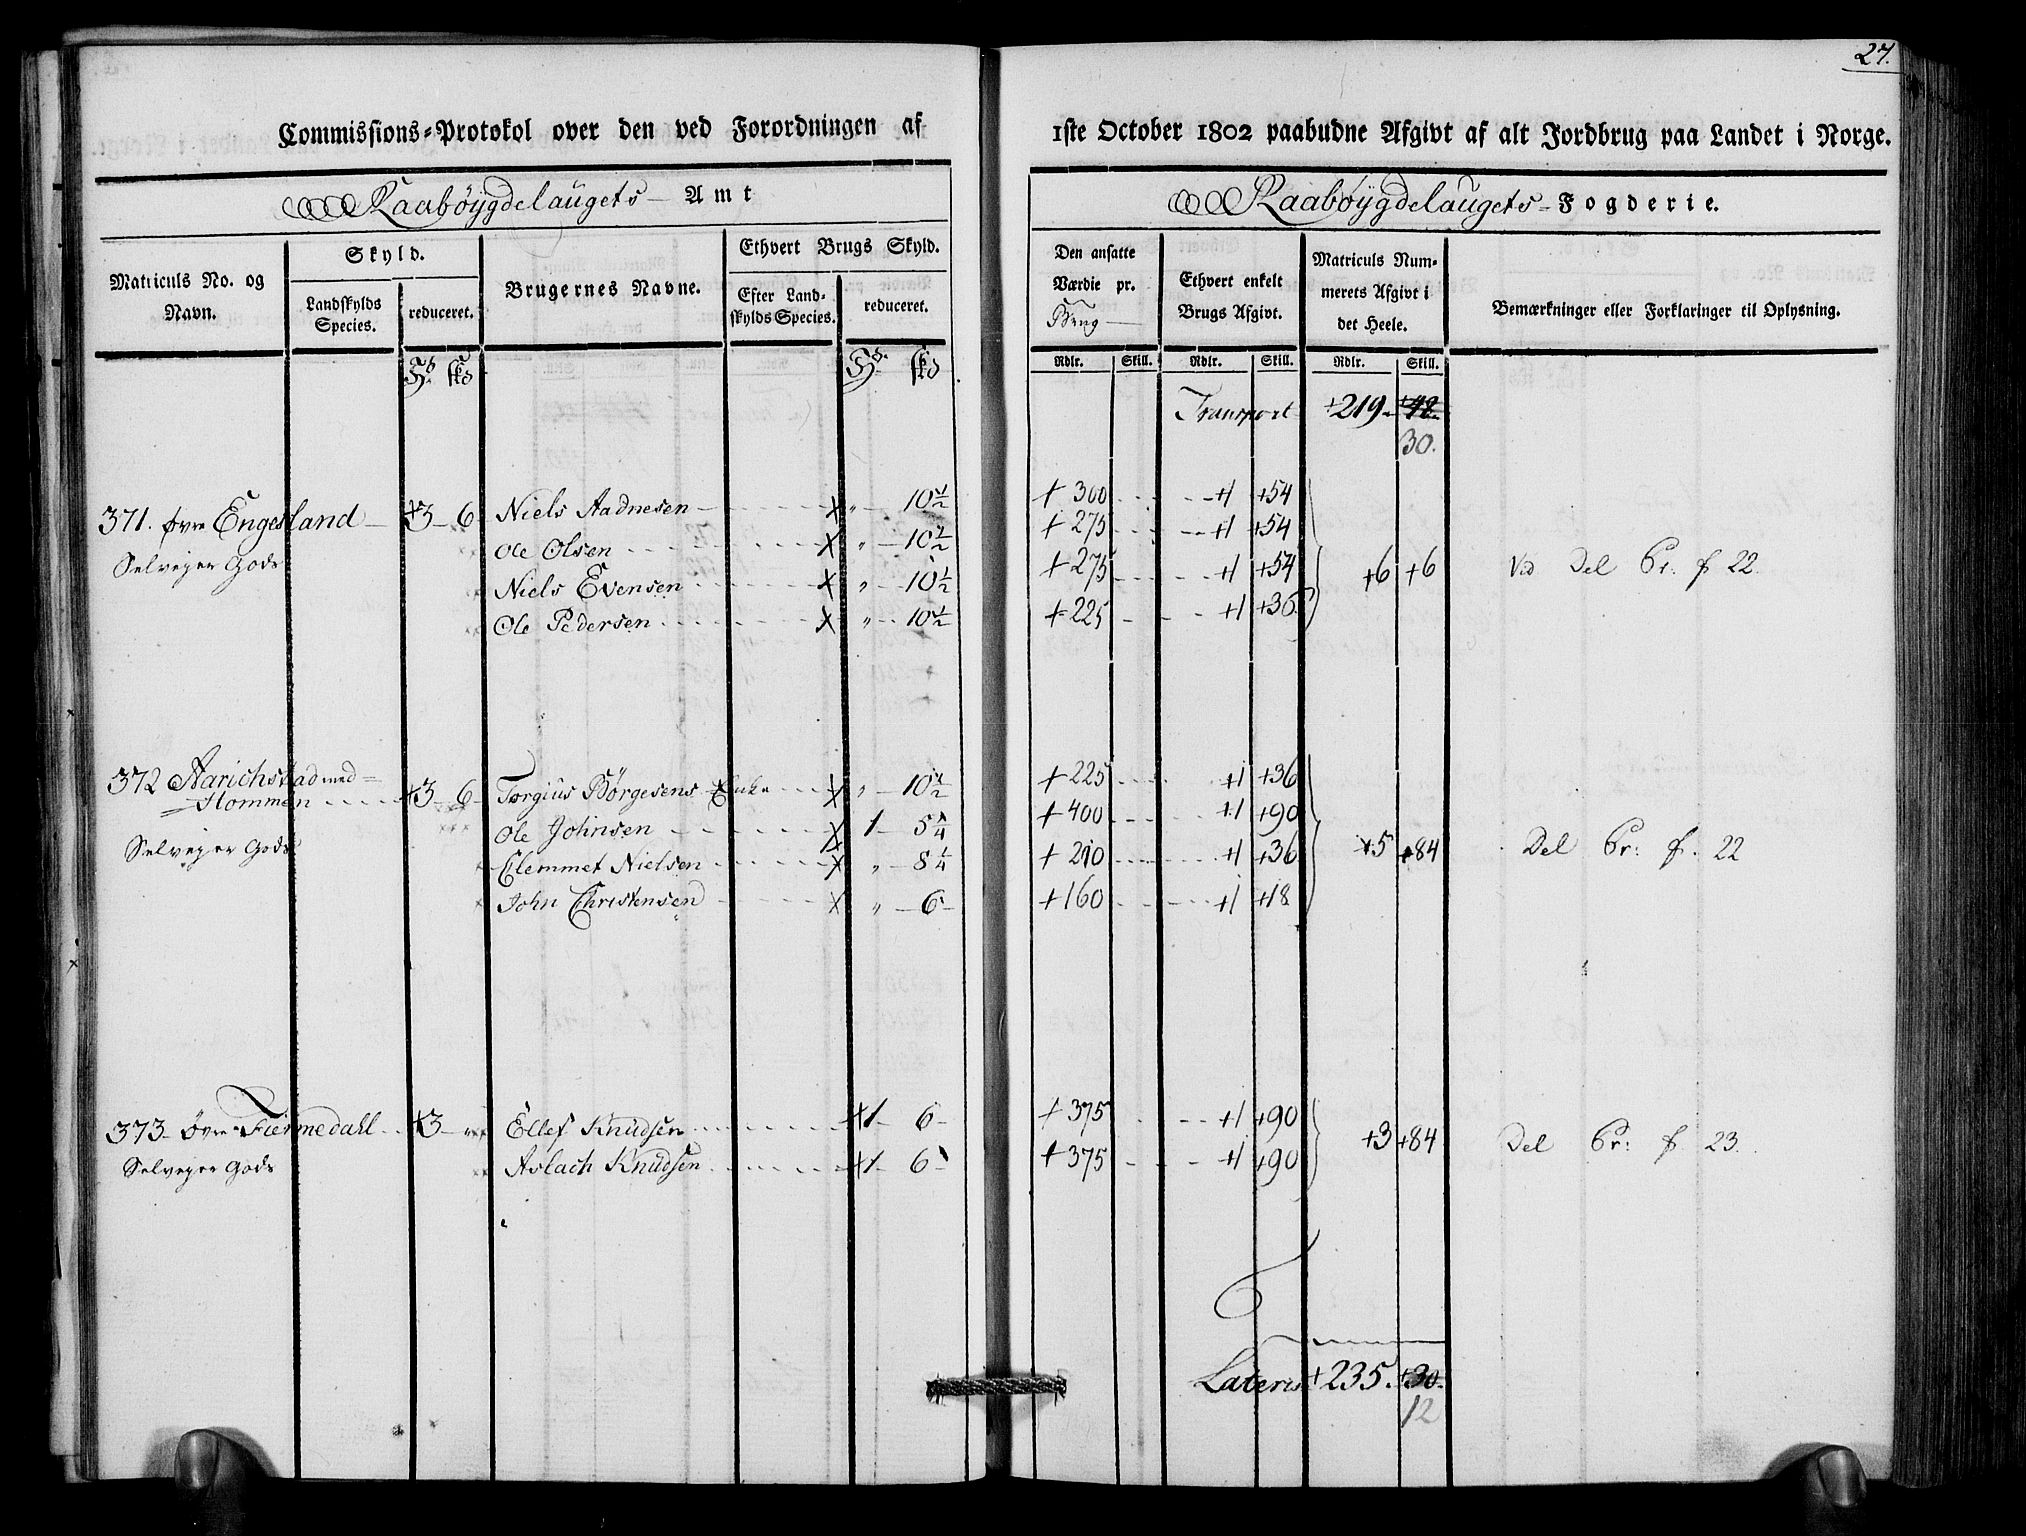 27.
Commissions-Protokol over den ved Forordningen af 1ste October 1802 paabudne Afgivt af alt Jordbrug paa Landet i Norge.
Raabøygdelaugets Amt
Raabøygdelaugets Fogderie.
Matriculs No. og Navn.
Skyld.
Landskylds Species.
reduceret.
Brugernes Navne.
Ethvert Brugs Skyld.
Efter Landskylds Species.
reduceret.
Den ansatte Værdie pr. Brug
Ethvert enkelt Brugs Afgivt.
Matriculs Nummerets Afgivt i det Heele.
Bemærkninger eller Forklaringer til Oplysning.
Rdlr. Skill. Rdlr. Skill. Rdlr. Skill.
Transport +219 - +48.
30.
371. øvre Engesland +3 - 6 Niels Aadnesen x „ 10 1/2 + 300 +1 +54
Selvejer Gods Ole Olsen x „ 10 1/2 + 275 +1 +54
Niels Evensen x „ 10 1/2 + 275 +1 +54 +6 +6 Vid Del Pr: f 22.
Ole Pedersen x „ 10 1/2 + 225 +1 +36
372 Aarichstad med
Hommen +3 - 6 Torgius Børgesens Enke x „ 10 1/2 + 225 +1 +36
Ole Johnsen x 1 - 5 1/4 + 400 +1 +90
Selvejer Gods Clemmet Nielsen x „ 8 1/4 + 210 +1 +36 +5 +84 Del Pr: f. 22
John Christensen x „ 6 +160 +1 +18
373 Øvre Fiermedahl +3 Ellef Knudsen +1 6 + 375 +1 +90
Selvejer Gods Aslach Knudsen +1 6 + 375 +1 +90 +3 +84 Del Pr: f 23.
Lateris +235. +30.
12